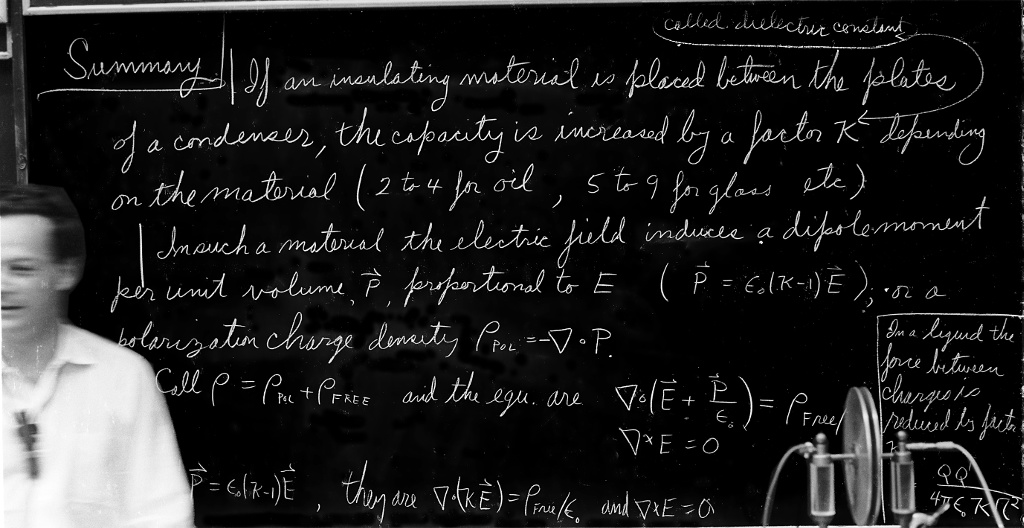 called dielectric constant
Summary | If an insulating material is placed between the plates
of a condenser, the capacity is increased by a factor K depending
on the material (2 to 4 for oil, 5 to 9 for glass etc)
In such a material the electric field induces a dipole moment
per unit volume, P⃗, proportional to E ( P⃗ = ε₀(K-1)E⃗ ); or a
polarization charge density ρ_POL = -∇∘P.
Call ρ = ρ_POL + ρ_FREE and the equ. are ∇∘(E⃗ + P⃗/ε₀) = ρ_Free/
∇×E = 0
P⃗ = ε₀(K-1)E⃗, they are ∇∘(KE⃗) = ρ_Free/ε₀ and ∇×E = 0
In a liquid the
force between
charges is
reduced by factor
QQ'
4πε₀Kr²